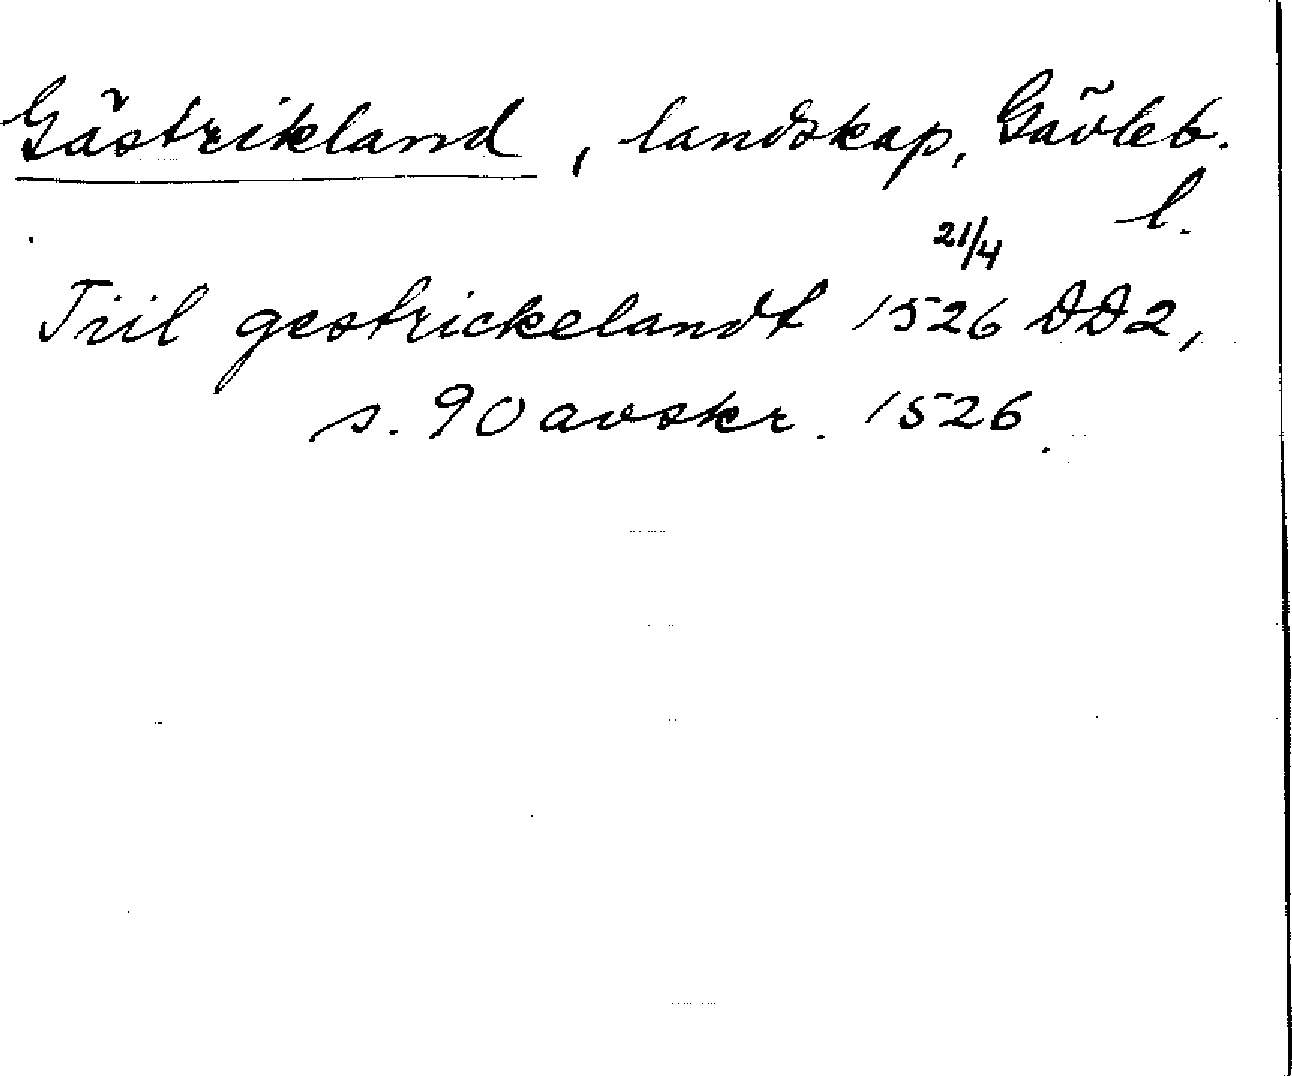 Gästrikland, landskap, Gävleb.
l.
21/4
Tiil gestrickelandt 1526 DD2,
s. 90 avskr. 1526.